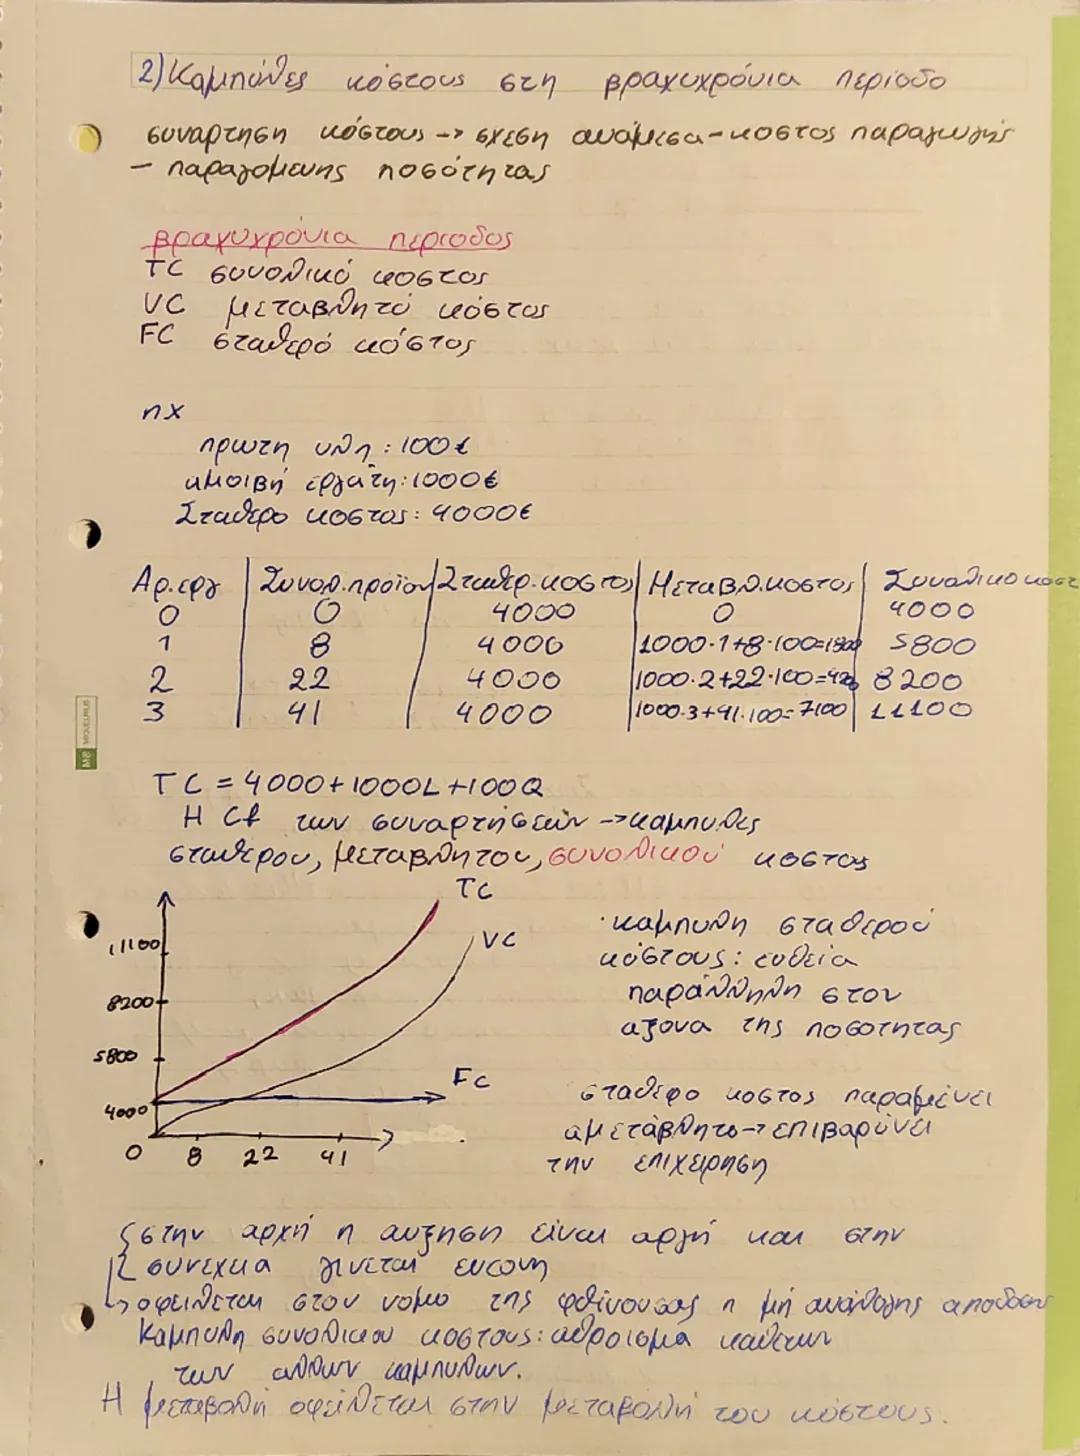 2) Καμπύλες κόστους στη βραχυχρόνια περίοδο
συναρτηση κόστους -> σχεση ανάμεσα - κοστος παραγωγής
- παραγομενης ποσότητας
βραχυχρόνια περιοδος
TC συνολικό κοστος
VC μεταβλητό κόστος
FC σταθερό κόστος
πχ
πρωτη υλη : 100€
αμοιβή εργάτη: 1000€
Σταθερο κοστος: 4000€
Αρ. εργ Συνολ. προϊον Σταθερ. κοστος Μεταβλ. κοστος Συνολικο κοστ
0 0 4000 0 4000
1 8 4000 1000·1+8·100=1800 5800
2 22 4000 1000·2+22·100=420 8200
3 41 4000 1000·3+41·100=7100 11100
TC = 4000+1000L+100Q
Η των συναρτήσεων -> καμπυλες
σταθερου, μεταβλητου, συνολικού κοστος
TC
VC
FC
11100
8200
5800
4000
0 8 22 41
· καμπυλη σταθερού
κόστους: ευθεία
παράλληλη στον
αξονα της ποσοτητας
σταθερο κοστος παραμένει
αμετάβλητο -> επιβαρύνει
την επιχειρηση
στην αρχή η αυξηση είναι αργή και στην
συνεχεια γινεται εντονη
-> οφειλεται στον νομο της φθίνουσας η μή ανάλογης αποδοσης
Καμπυλη συνολικου κοστους: αθροισμα καθετων
των αλλων καμπυλων.
Η μεταβολή οφείλεται στην μεταβολή του κόστους.